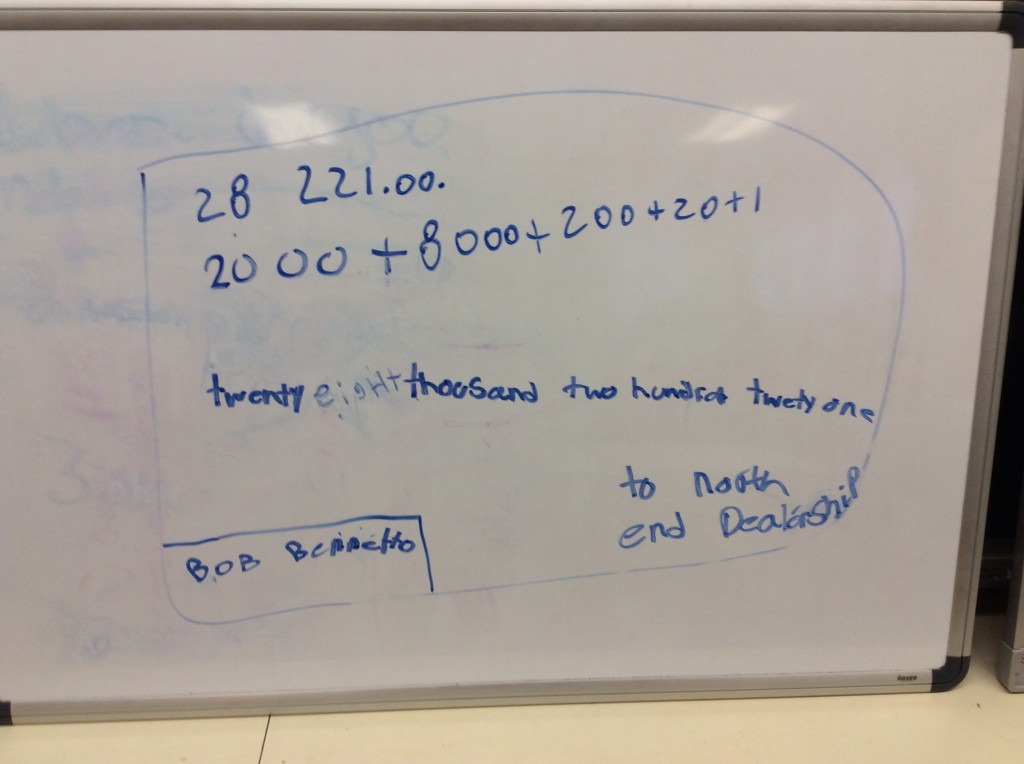 28 221.00.
2000 + 8000 + 200 + 20 + 1
twenty eight thousand two hundred twety one
to north
end Dealership
BOB Bennetto